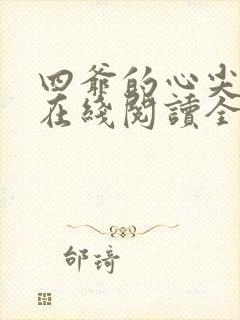 四爺的心尖
在綫閱讀全
邰琦